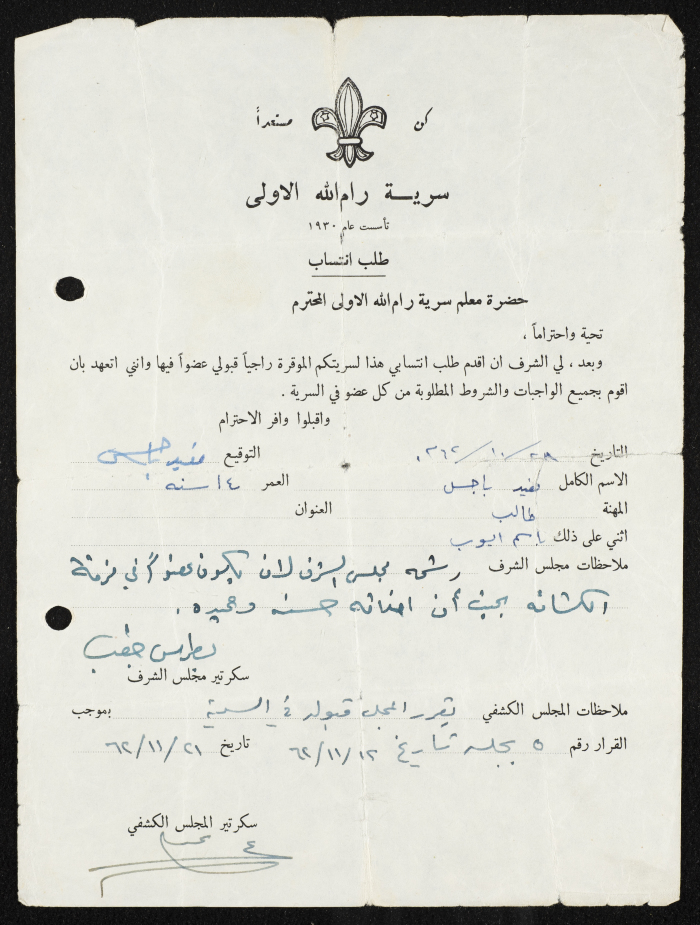 كن مستعداً
سرية رام الله الاولى
تأسست عام ١٩٣٠
طلب انتساب
حضرة معلم سرية رام الله الاولى المحترم
تحية واحتراماً ،
وبعد ، لي الشرف ان اقدم طلب انتسابي هذا لسريتكم الموقرة راجياً قبولي عضواً فيها وانني اتعهد بان
اقوم بجميع الواجبات والشروط المطلوبة من كل عضو في السرية .
واقبلوا وافر الاحترام
التاريخ التوقيع مفيد
الاسم الكامل مفيد باجس العمر ١٤ سنه
المهنة طالب العنوان
اثني على ذلك باسم ايوب
ملاحظات مجلس الشرف رشحه مجلس الشرف لان يكون عضواً في فرقة
الكشافه بحيث أن اخلاقه حسنه وحميده .
بطرس
سكرتير مجلس الشرف
ملاحظات المجلس الكشفي تقرر المجلس قبوله في السرية بموجب
القرار رقم ٥ بجلسة تاريخ ٦٢/١١/١٢ تاريخ ٦٢/١١/٢١
سكرتير المجلس الكشفي